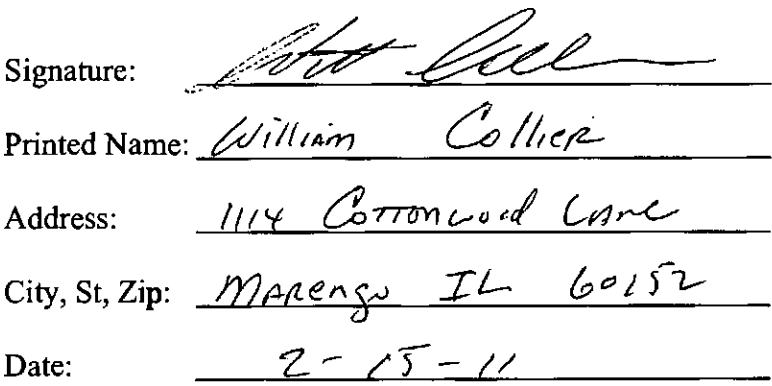 Signature:
Printed Name: William Collier
Address: 1114 Cottonwood Lane
City, St, Zip: Marengo IL 60152
Date: 2-15-11